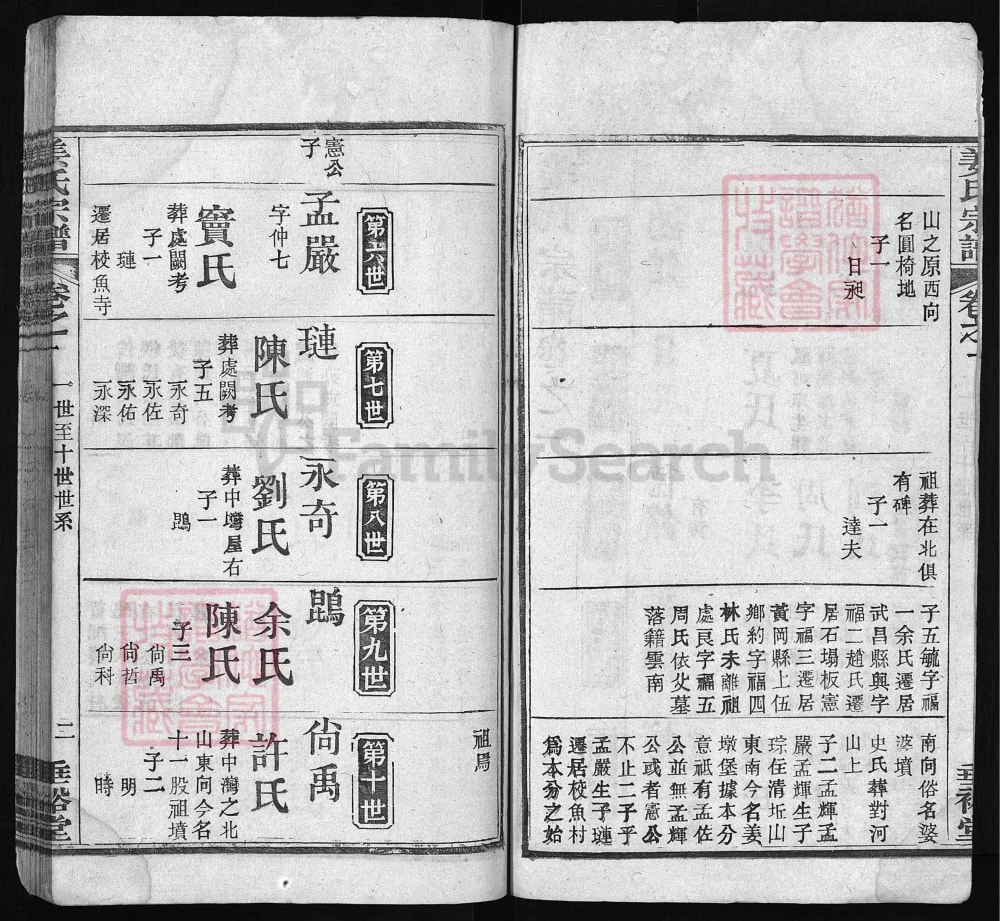 姜氏宗譜
卷之一
垂裕堂
山之原西向
名圓椅地
子一
日昶
祖葬在北俱
有碑
子一
達夫
子五毓字福
一余氏遷居
武昌縣興字
福二趙氏遷
居石塌板憲
字福三遷居
黃岡縣上伍
鄉約字福四
林氏未離祖
處良字福五
周氏依父墓
落籍雲南
南向俗名婆
婆墳
史氏葬對河
山上
子二孟輝孟
嚴孟輝生子
琮在清坵山
東南今名姜
墩堡據本分
意祇有孟佐
公並無孟輝
公或者憲公
不止二子乎
孟嚴生子璉
遷居校魚村
為本分之始
祖焉
第六世
憲公
子
孟嚴
字仲七
竇氏
葬處闕考
子一
璉
遷居校魚寺
第七世
璉
陳氏
葬處闕考
子五
永奇
永佐
永佑
永深
第八世
永奇
劉氏
葬中灣屋右
子一
鵾
第九世
鵾
余氏
陳氏
子三
尙禹
尙哲
尙科
第十世
尙禹
許氏
葬中灣之北
山東向今名
十一股祖墳
子二
明
時
姜氏宗譜
卷之一
一世至十世世系
二
垂裕堂
FamilySearch